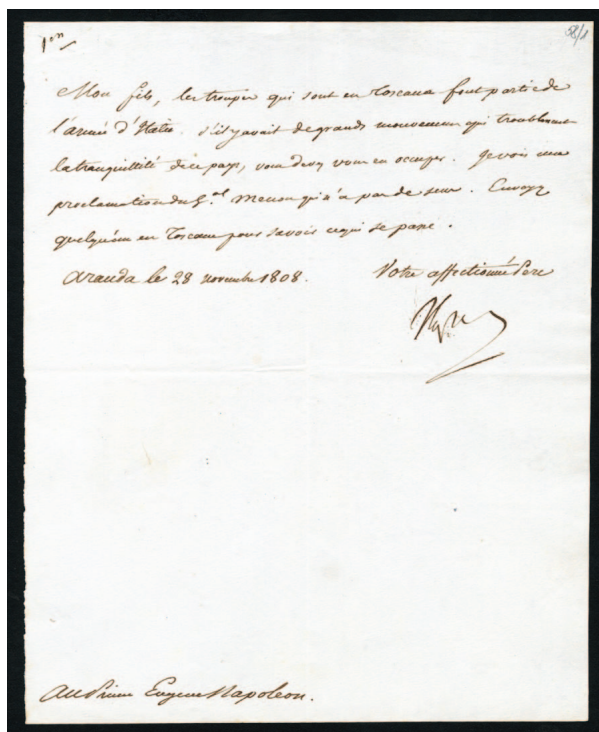 1er
98/1
Mon fils, les troupes qui sont en Toscane font partie de
l'armée d'Italie. S'il y avait de grands mouvemens qui troublassent
la tranquillité de ce pays, vous devez vous en occuper. Je vois une
proclamation du Gal Menou qui n'a pas de sens. Envoyez
quelqu'un en Toscane pour savoir ce qui se passe.
Aranda le 28 novembre 1808.
Votre affectionné Père
Au Prince Eugene Napoleon.